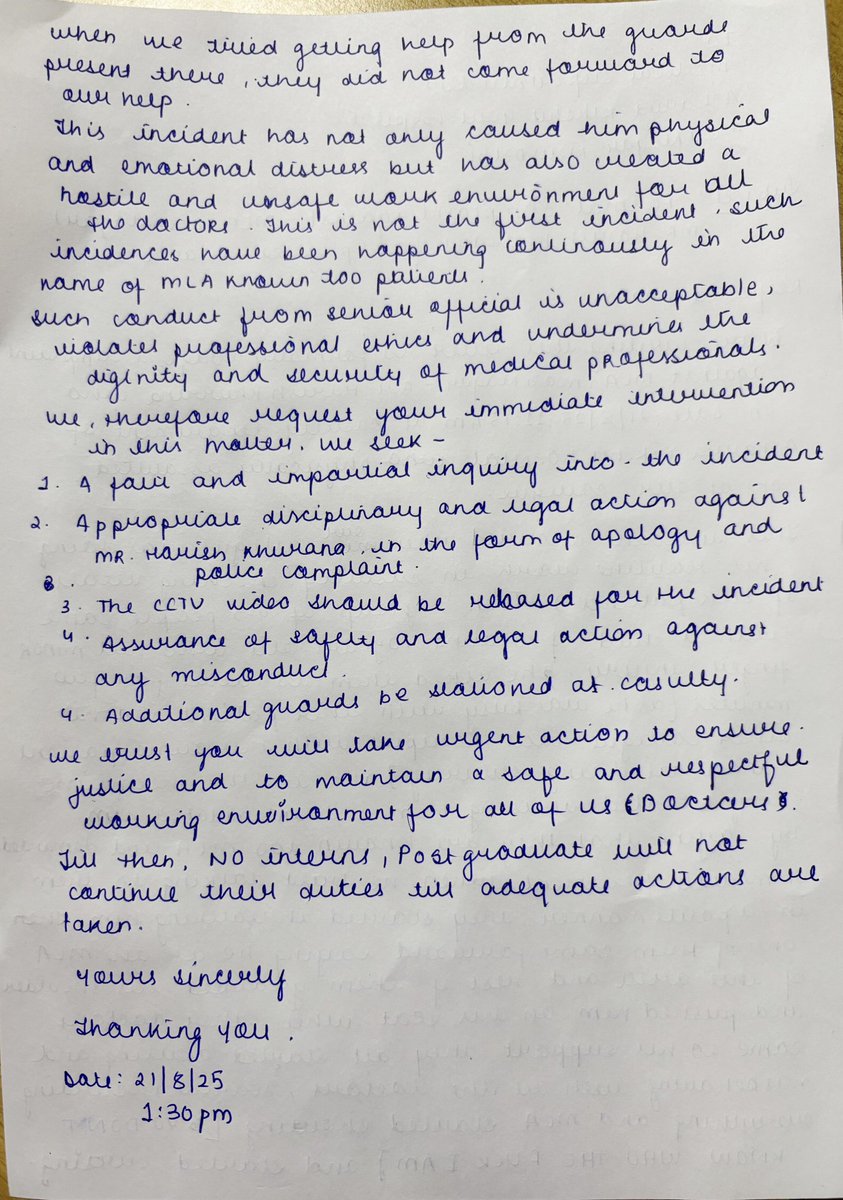 when we tried getting help from the guards
present there, they did not come forward to
our help.
This incident has not only caused him physical
and emotional distress but has also created a
hostile and unsafe work environment for all
the doctors. This is not the first incident, such
incidences have been happening continously in the
name of MLA known too patients.
such conduct from senior official is unacceptable,
violates professional ethics and undermines the
diginity and security of medical professionals.
we, therefore request your immediate intervention
in this matter. we seek -
1. A fair and impartial inquiry into the incident
2. Appropriate disciplinary and legal action against
MR. Harish Khurana, in the form of apology and
police complaint.
3. The CCTV video should be released for the incident
4. Assurance of safety and legal action against
any misconduct.
4. Additional guards be stationed at casulty.
we trust you will take urgent action to ensure
justice and to maintain a safe and respectful
working environment for all of us (Doctors).
Till then, NO interns, Post graduate will not
continue their duties till adequate actions are
taken.
Yours sincerly
Thanking you.
Date: 21/8/25
1:30 pm